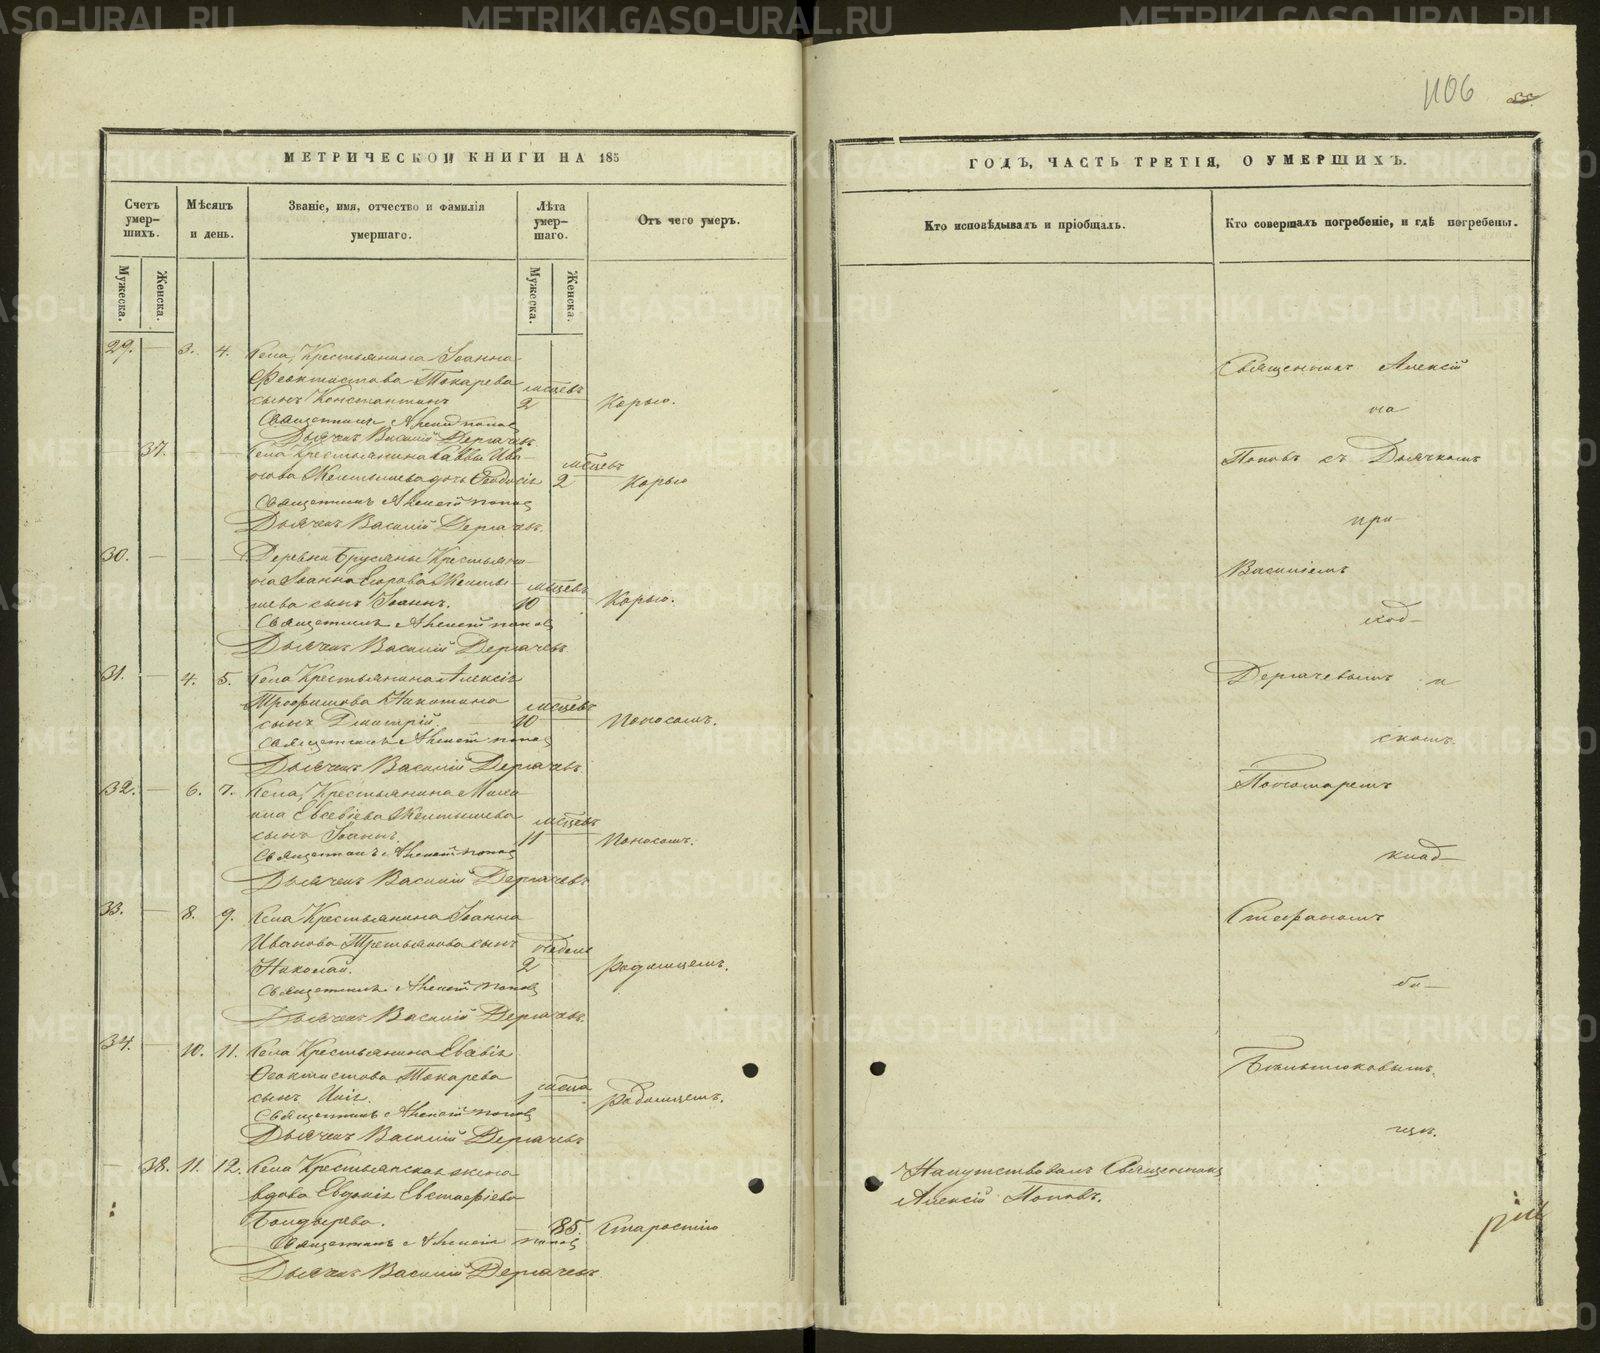 МЕТРИЧЕСКОЙ КНИГИ НА 185
Счетъ умер-
шихъ.
Мужеска.
Женска.
Мѣсяцъ
и день.
Званіе, имя, отчество и фамилія
умершаго.
Лѣта
умер-
шаго.
Мужеска.
Женска.
Отъ чего умеръ.
29. — 3. 4. Села, Крестьянина Іоанна
Феоктистова Токарева мѣсцевъ
сынъ Константинъ 2 Корью.
Священникъ Алексій Поповъ
Дьячекъ Василій Дергачевъ
— 37. — — Села Крестьянина Саввы Ива-
нова Желтышева дочь Ѳеодосія мѣсцевъ 2 Корью
Священникъ Алексій Поповъ
Дьячекъ Василій Дергачевъ.
30. — — — Деревни Брусяны Крестьяни-
на Іоанна Егорова Желты- мѣсцевъ
шева сынъ Іоаннъ. 10 Корью.
Священникъ Алексій Поповъ
Дьячекъ Василій Дергачевъ.
31. — 4. 5. Села Крестьянина Алексія
Трофимова Никитина мѣсцевъ
сынъ Дмитрій. 10 Поносомъ.
Священникъ Алексій Поповъ
Дьячекъ Василій Дергачевъ.
32. — 6. 7. Села, Крестьянина
Евсевіева Желтышева мѣсцевъ
сынъ Іоаннъ 11 Поносомъ.
Священникъ Алексій Поповъ
Дьячекъ Василій Дергачевъ
33. — 8. 9. Села Крестьянина Іоанна
Иванова Третьякова сынъ недели
Николай. 2 Родимцемъ.
Священникъ Алексій Поповъ
Дьячекъ Василій Дергачевъ.
34. — 10. 11. Села Крестьянина Саввы
Ѳеоктистова Токарева мѣсца
сынъ 1 Родимцемъ.
Священникъ Алексій Поповъ
Дьячекъ Василій Дергачевъ
— 38. 11. 12. Села Крестьянская жена
вдова Евдокія Евстафіева
Болдырева. 85. Старостію
Священникъ Алексій Поповъ
Дьячекъ Василій Дергачевъ.
1106
ГОДЪ, ЧАСТЬ ТРЕТІЯ, О УМЕРШИХЪ.
Кто исповѣдывалъ и пріобщалъ.
Кто совершалъ погребеніе, и гдѣ погребены.
Священникъ Алексій
на
Поповъ съ Дьячкомъ
при-
Василіемъ
ход-
Дергачевымъ и
скомъ
Пономаремъ
клад-
Стефаномъ
би-
щѣ.
Напутствовалъ Священникъ
Алексій Поповъ.
METRIKI.GASO-URAL.RU